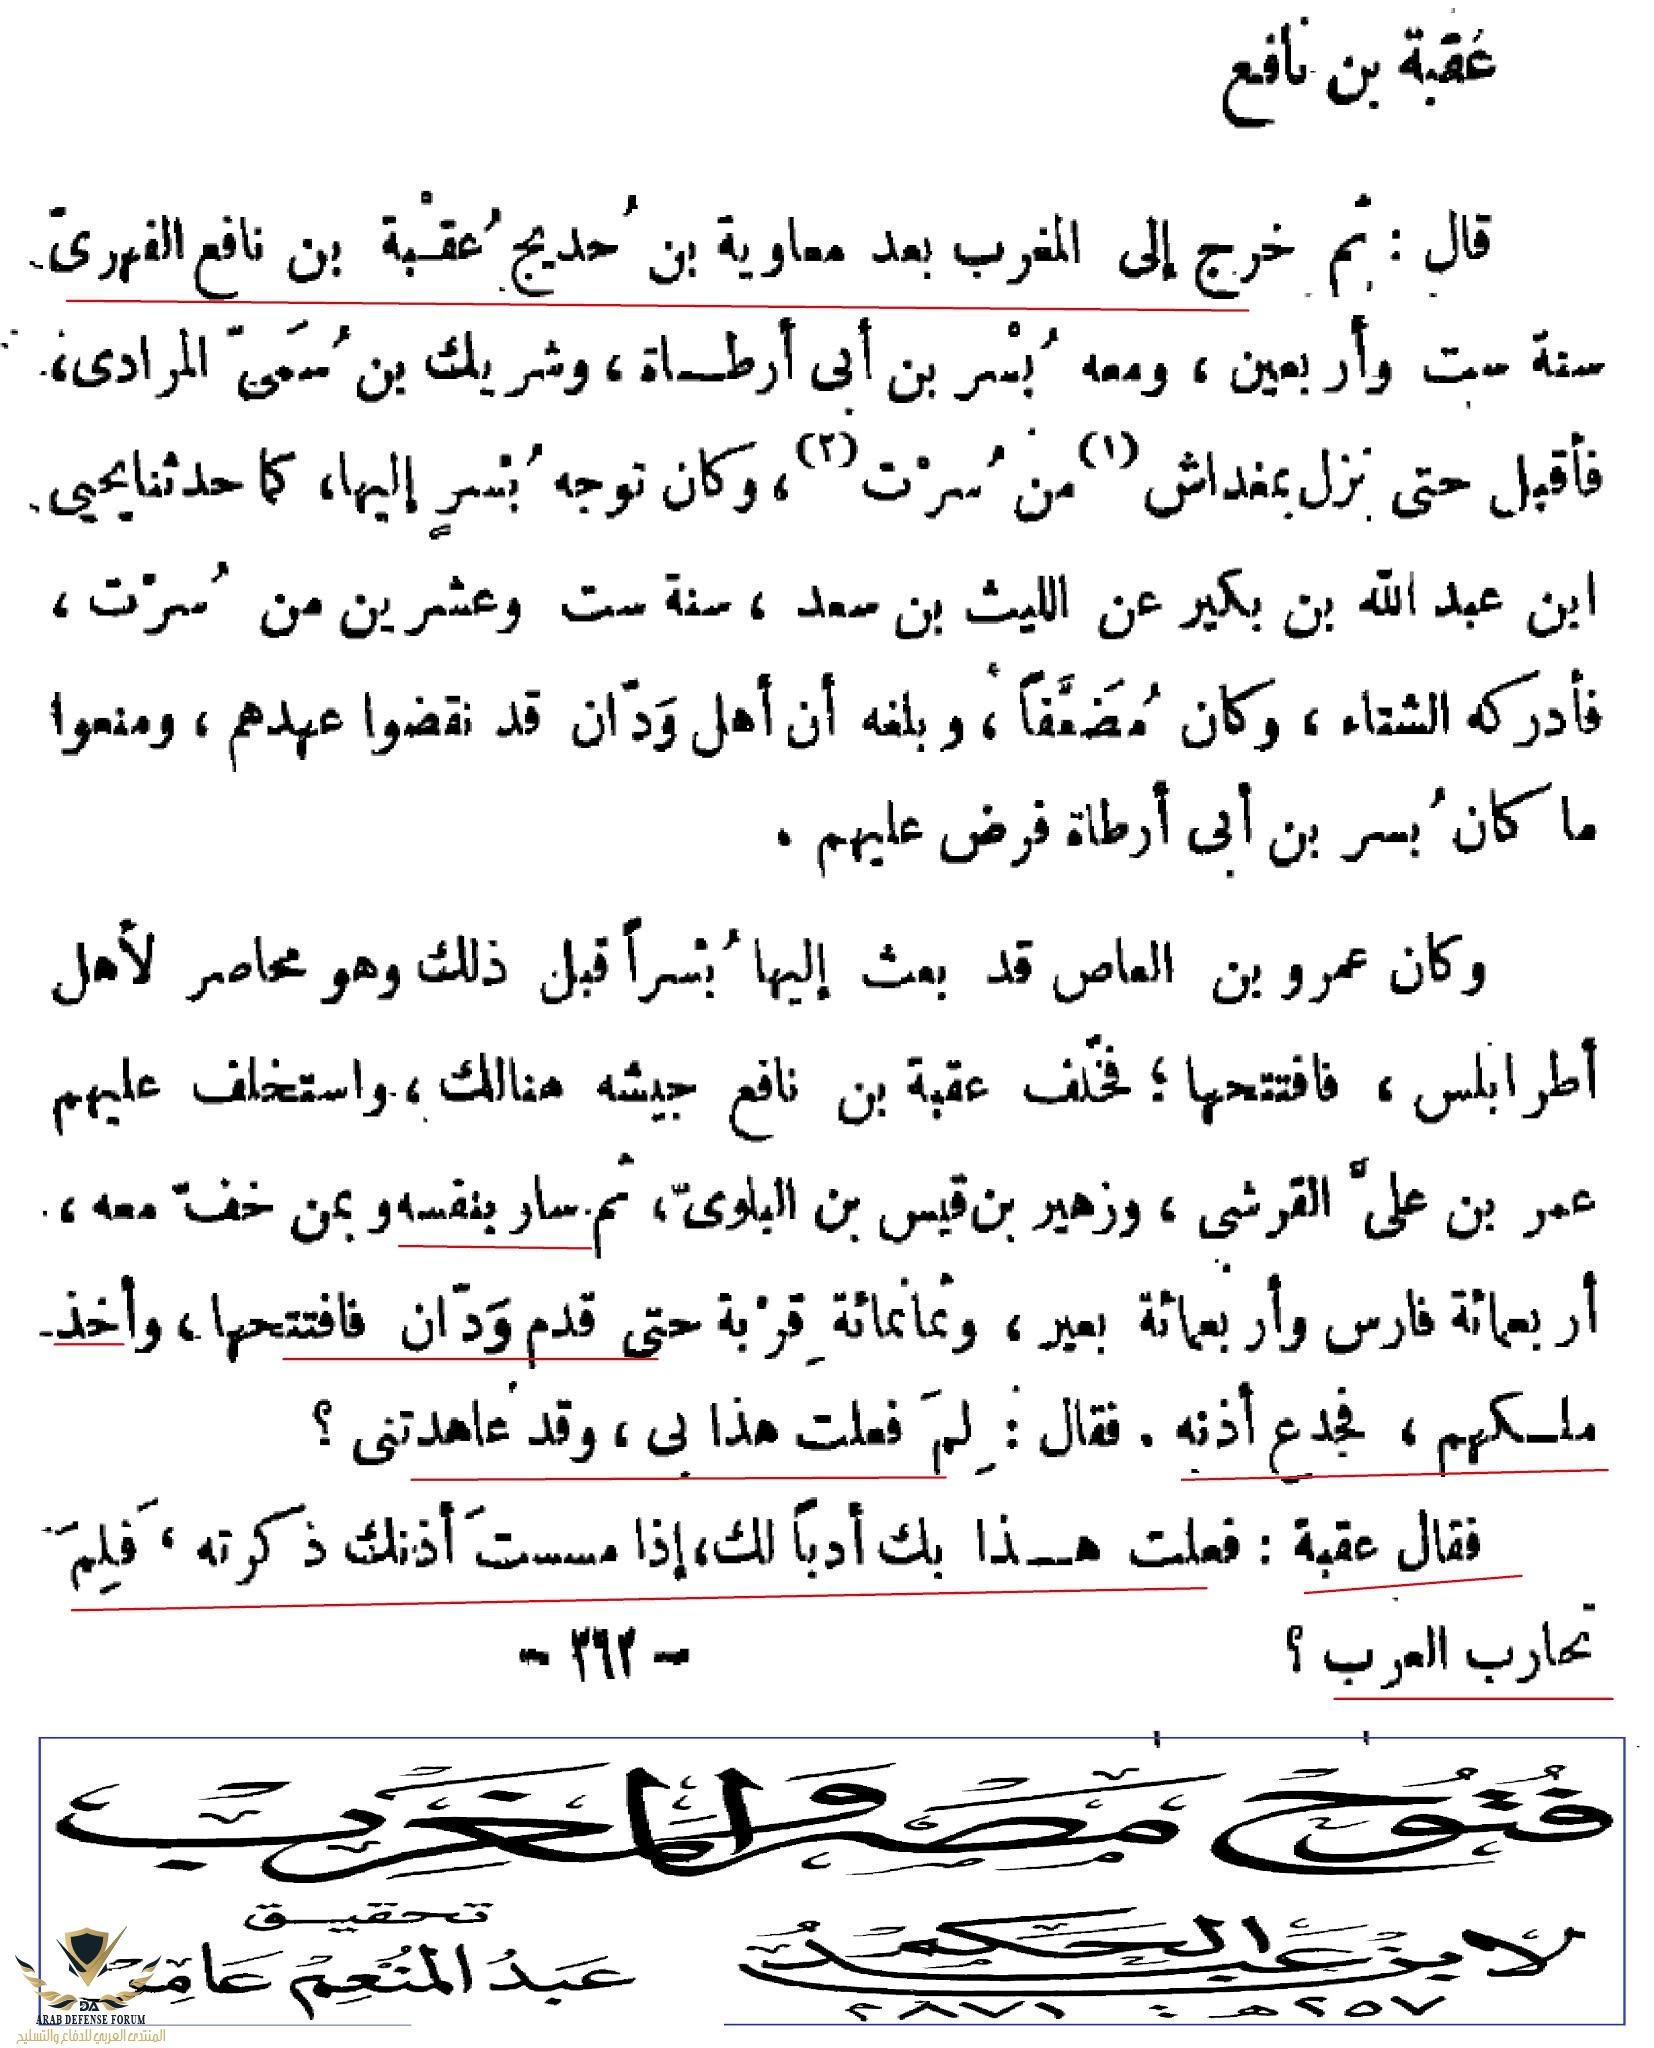 عُقبة بن نافع
قال : ثم خرج إلى المغرب بعد معاوية بن حُديج عُقْبة بن نافع الفهرىّ
سنة ست وأربعين ، ومعه بُسْر بن أبى أرطاة ، وشريك بن سُمَىّ المرادى ،
فأقبل حتى نزل بمغداش (١) من سُرْت (٢) ، وكان توجه بُسْرٍ إليها، كما حدثنا يحيى
ابن عبد الله بن بكير عن الليث بن سعد ، سنة ست وعشرين من سُرْت ،
فأدركه الشتاء ، وكان مُضَعَّفاً ، وبلغه أن أهل وَدّان قد نقضوا عهدهم ، ومنعوا
ما كان بُسر بن أبى أرطاة فرض عليهم .
وكان عمرو بن العاص قد بعث إليها بُسْراً قبل ذلك وهو محاصر لأهل
أطرابلس ، فافتتحها ؛ فخّلف عقبة بن نافع جيشه هنالك ، واستخلف عليهم
عمر بن علىَّ القرشى ، وزهير بن قيس بن البلوىّ ، ثم سار بنفسه وبمن خفّ معه ،
أربعمائة فارس وأربعمائة بعير ، وثمانمائة قِرْبة حتى قدم وَدّان فافتتحها ، وأخذ
ملكهم ، فجدع أذنه . فقال : لِمَ فعلت هذا بى ، وقد عاهدتنى ؟
فقال عقبة : فعلت هــذا بك أدباً لك، إذا مسستَ أذنك ذكرته ، فَلِمَ
تحارب العرب ؟
- ٢٦٢ -
فتوح مصر والمغرب
لابن عبد الحكم
٢٥٧هـ : ٨٧١م
تحقيق
عبد المنعم عامر
ARAB DEFENSE FORUM
المنتدى العربي للدفاع والتسليح